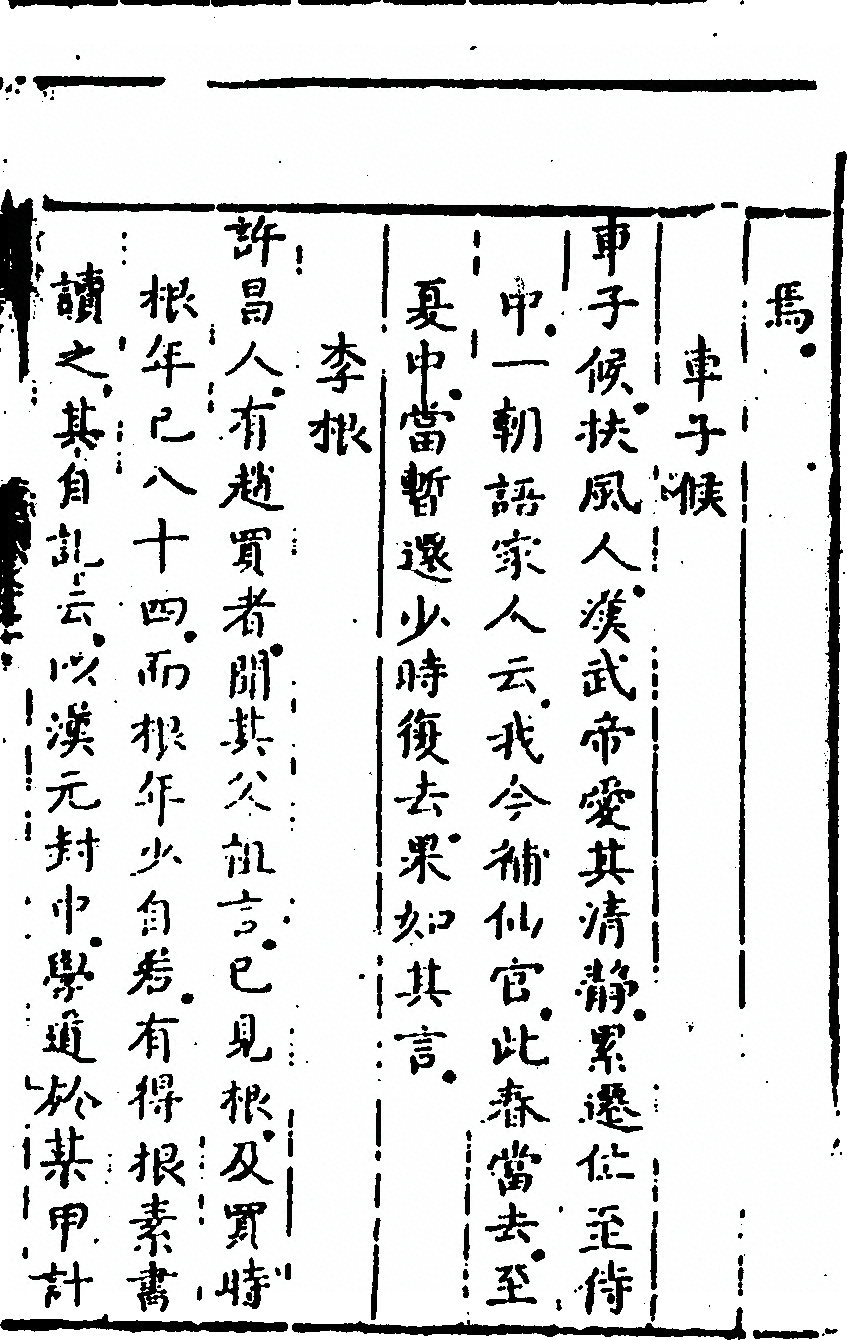 焉。
車子候
車子候。扶風人。漢武帝愛其清靜。累遷位至侍
中。一朝語家人云。我今補仙官。此春當去。至
夏中。當暫還少時復去。果如其言。
李根
許昌人。有趙買者。聞其父祖言。已見根。及買時
根年已八十四。而根年少自若。有得根素書
讀之。其自記云。以漢元封中。學道於某甲計